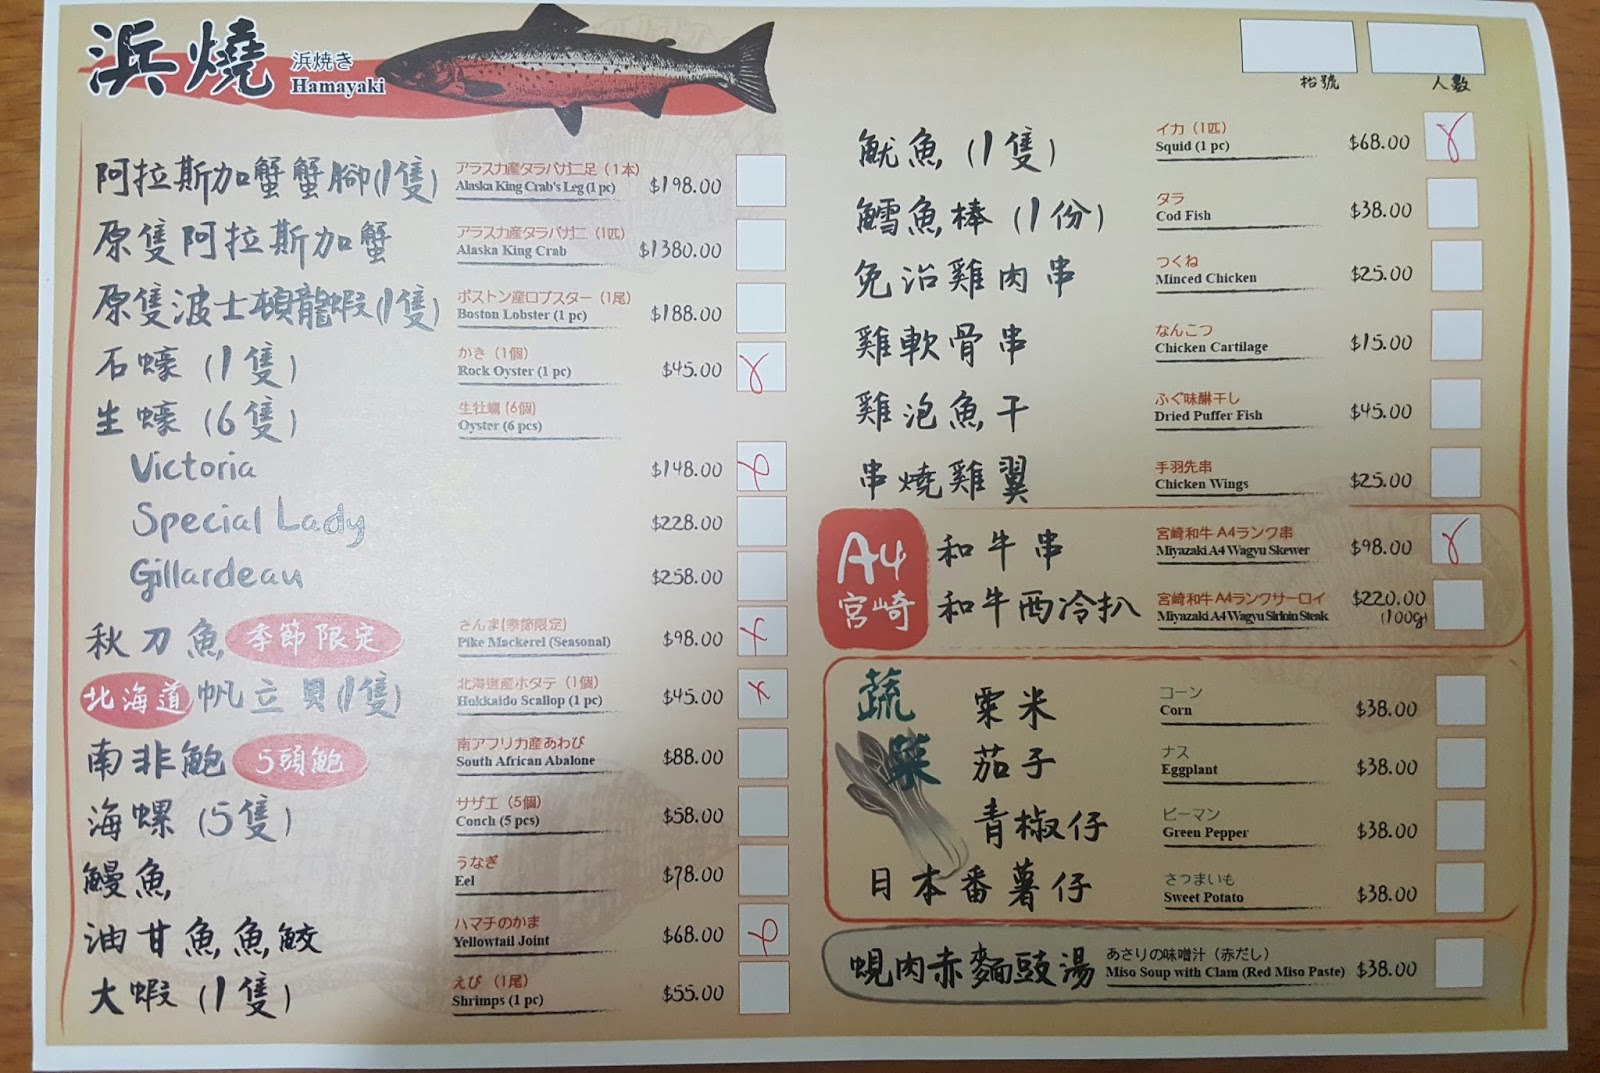 浜燒 浜焼き
Hamayaki
枱號 人數
阿拉斯加蟹蟹腳(1隻) アラスカ産タラバガニ足（1本）
Alaska King Crab's Leg (1 pc) $198.00
原隻阿拉斯加蟹 アラスカ産タラバガニ（1匹）
Alaska King Crab $1380.00
原隻波士頓龍蝦(1隻) ボストン産ロブスター（1尾）
Boston Lobster (1 pc) $188.00
石蠔 (1隻) かき（1個）
Rock Oyster (1 pc) $45.00
生蠔 (6隻) 生牡蠣 (6個)
Oyster (6 pcs)
Victoria $148.00
Special Lady $228.00
Gillardeau $258.00
秋刀魚 季節限定 さんま(季節限定)
Pike Mackerel (Seasonal) $98.00
北海道 帆立貝(1隻) 北海道産ホタテ（1個）
Hokkaido Scallop (1 pc) $45.00
南非鮑 5頭鮑 南アフリカ産あわび
South African Abalone $88.00
海螺 (5隻) サザエ（5個）
Conch (5 pcs) $58.00
鰻魚 うなぎ
Eel $78.00
油甘魚魚鮫 ハマチのかま
Yellowtail Joint $68.00
大蝦 (1隻) えび（1尾）
Shrimps (1 pc) $55.00
魷魚 (1隻) イカ（1匹）
Squid (1 pc) $68.00
鱈魚棒 (1份) タラ
Cod Fish $38.00
免治雞肉串 つくね
Minced Chicken $25.00
雞軟骨串 なんこつ
Chicken Cartilage $15.00
雞泡魚干 ふぐ味醂干し
Dried Puffer Fish $45.00
串燒雞翼 手羽先串
Chicken Wings $25.00
A4
宮崎
和牛串 宮崎和牛 A4ランク串
Miyazaki A4 Wagyu Skewer $98.00
和牛西冷扒 宮崎和牛 A4ランクサーロイ
Miyazaki A4 Wagyu Sirloin Steak $220.00
(100g)
蔬菜
粟米 コーン
Corn $38.00
茄子 ナス
Eggplant $38.00
青椒仔 ピーマン
Green Pepper $38.00
日本番薯仔 さつまいも
Sweet Potato $38.00
蜆肉赤麵豉湯 あさりの味噌汁（赤だし）
Miso Soup with Clam (Red Miso Paste) $38.00